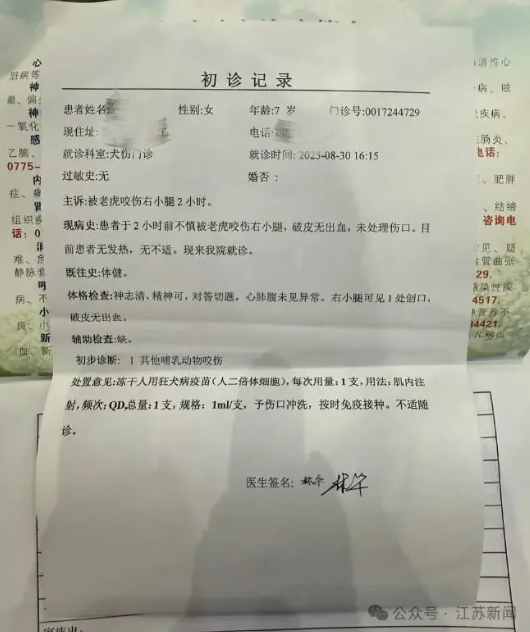 初诊记录
患者姓名: 性别:女 年龄:7 岁 门诊号:0017244729
现住址: 电话:
就诊科室:犬伤门诊 就诊时间: 2025-08-30 16:15
过敏史:无 婚否:
主诉:被老虎咬伤右小腿2小时。
现病史:患者于2小时前不慎被老虎咬伤右小腿,破皮无出血,未处理伤口。目
前患者无发热,无不适。现来我院就诊。
既往史:体健。
体格检查:神志清,精神可,对答切题。心肺腹未见异常。右小腿可见1处创口,
破皮无出血。
辅助检查:缺。
初步诊断: 1 其他哺乳动物咬伤
处置意见:冻干人用狂犬病疫苗(人二倍体细胞),每次用量:1支,用法:肌内注
射,频次:QD,总量:1支,规格: 1ml/支,予伤口冲洗,按时免疫接种。不适随
诊。
医生签名:
心
脏病等
神
神
一氧化
感
乙脑、
0775-
内
组织
话: 0
静脉套
病、不
小
新
血、
源性心
病、眩
疾病、
肠炎、
电话:
肥胖
结缔
咨询电
疑
管曲张
29.
感染性
4517.
营养不
34421.
公众号·江苏新闻